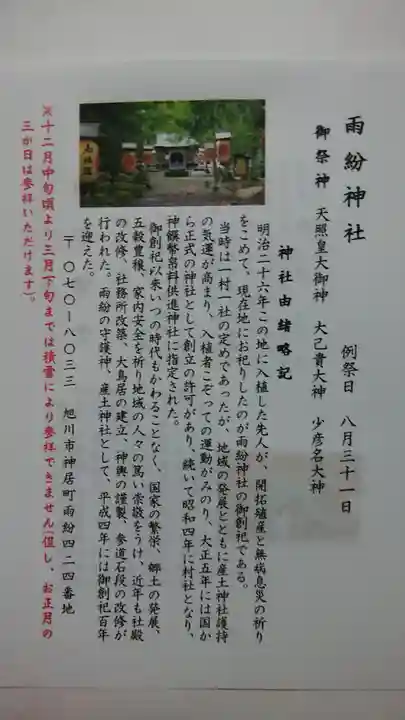 雨紛神社　例祭日　八月三十一日
御祭神　天照皇大御神　大己貴大神　少彦名大神
神社由緒略記
明治二十六年この地に入植した先人が、開拓殖産と無病息災の祈り
をこめて、現在地にお祀りしたのが雨紛神社の御創祀である。
当時は一村一社の定めであったが、地域の発展とともに産土神社護持
の気運が高まり、入植者こぞっての運動がみのり、大正五年には国か
ら正式の神社として創立の許可があり、続いて昭和四年に村社となり、
神饌幣帛料供進神社に指定された。
御創祀以来いつの時代もかわることなく、国家の繁栄、郷土の発展、
五穀豊穣、家内安全を祈り地域の人々の篤い崇敬をうけ、近年も社殿
の改修、社務所改築、大鳥居の建立、神輿の謹製、参道石段の改修が
行われた。雨紛の守護神、産土神社として、平成四年には御創祀百年
を迎えた。
〒〇七〇－八〇三三　旭川市神居町雨紛四二四番地
※十二月中旬頃より三月下旬までは積雪により参拝できません（但し、お正月の
三が日は参拝いただけます）。